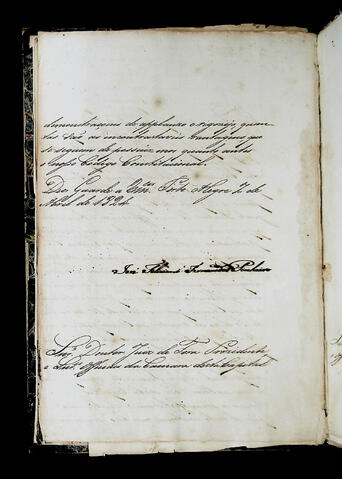 demonstracoens de applauso e regozijo quan
to são as incontrastaveis vantagens que
se seguem de possuir nos quanto antes
Codigo Constitucional.
Deos Guarde a Vm.ces Porto Alegre 7 de
Abril de 1824
José Feliciano Fernandes Pinheiro
Snr. Doutor Juiz de Fora Presidente
e Officiaes da Camara desta Capital